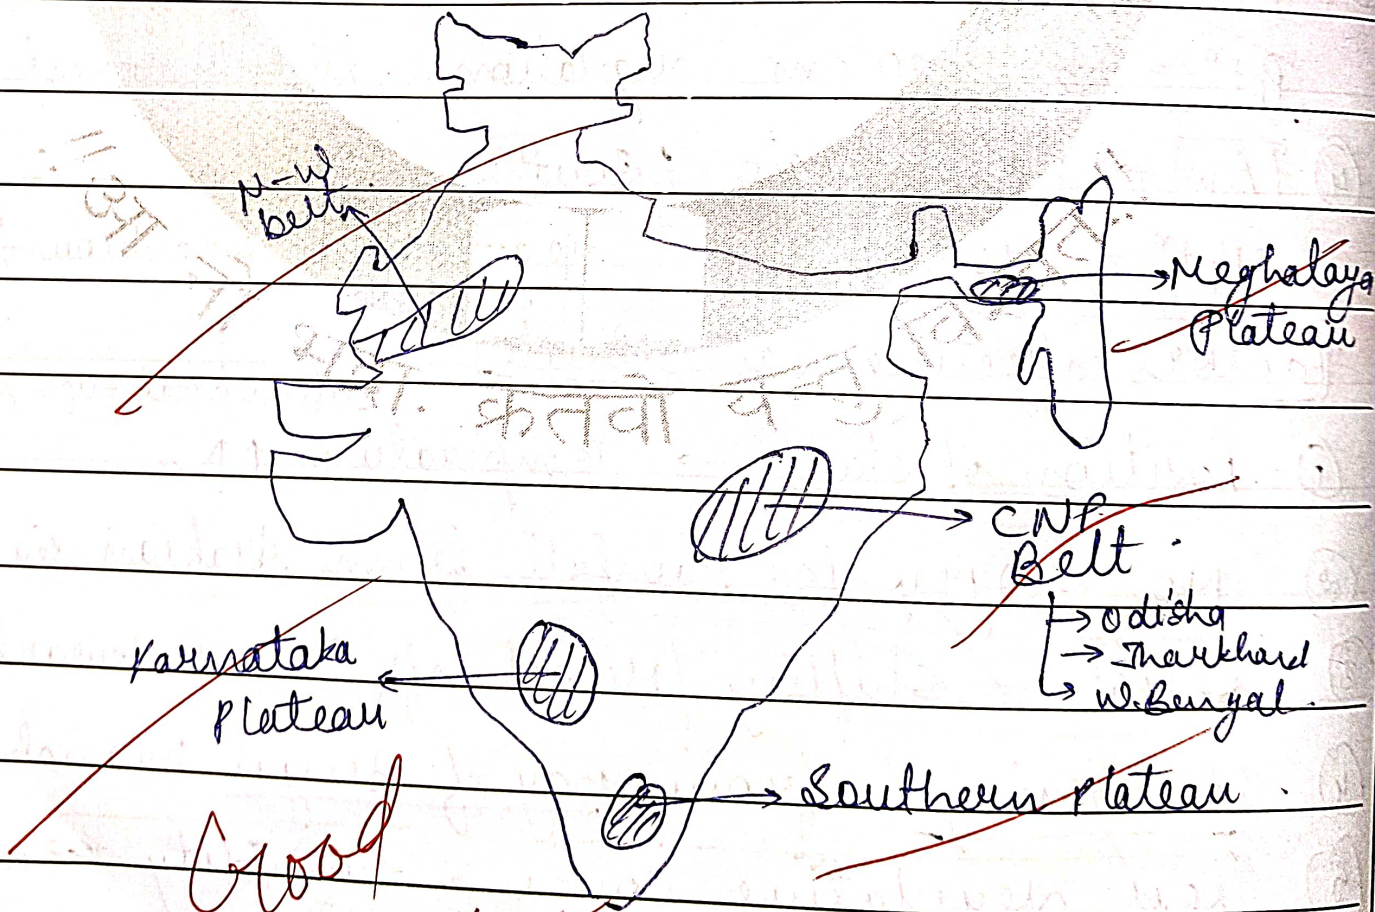 N-W
belt
Meghalaya
Plateau
क्रतवो
CNP
Belt
→ Odisha
→ Jharkhand
→ W. Bengal.
Karnataka
Plateau
Southern Plateau.
Good